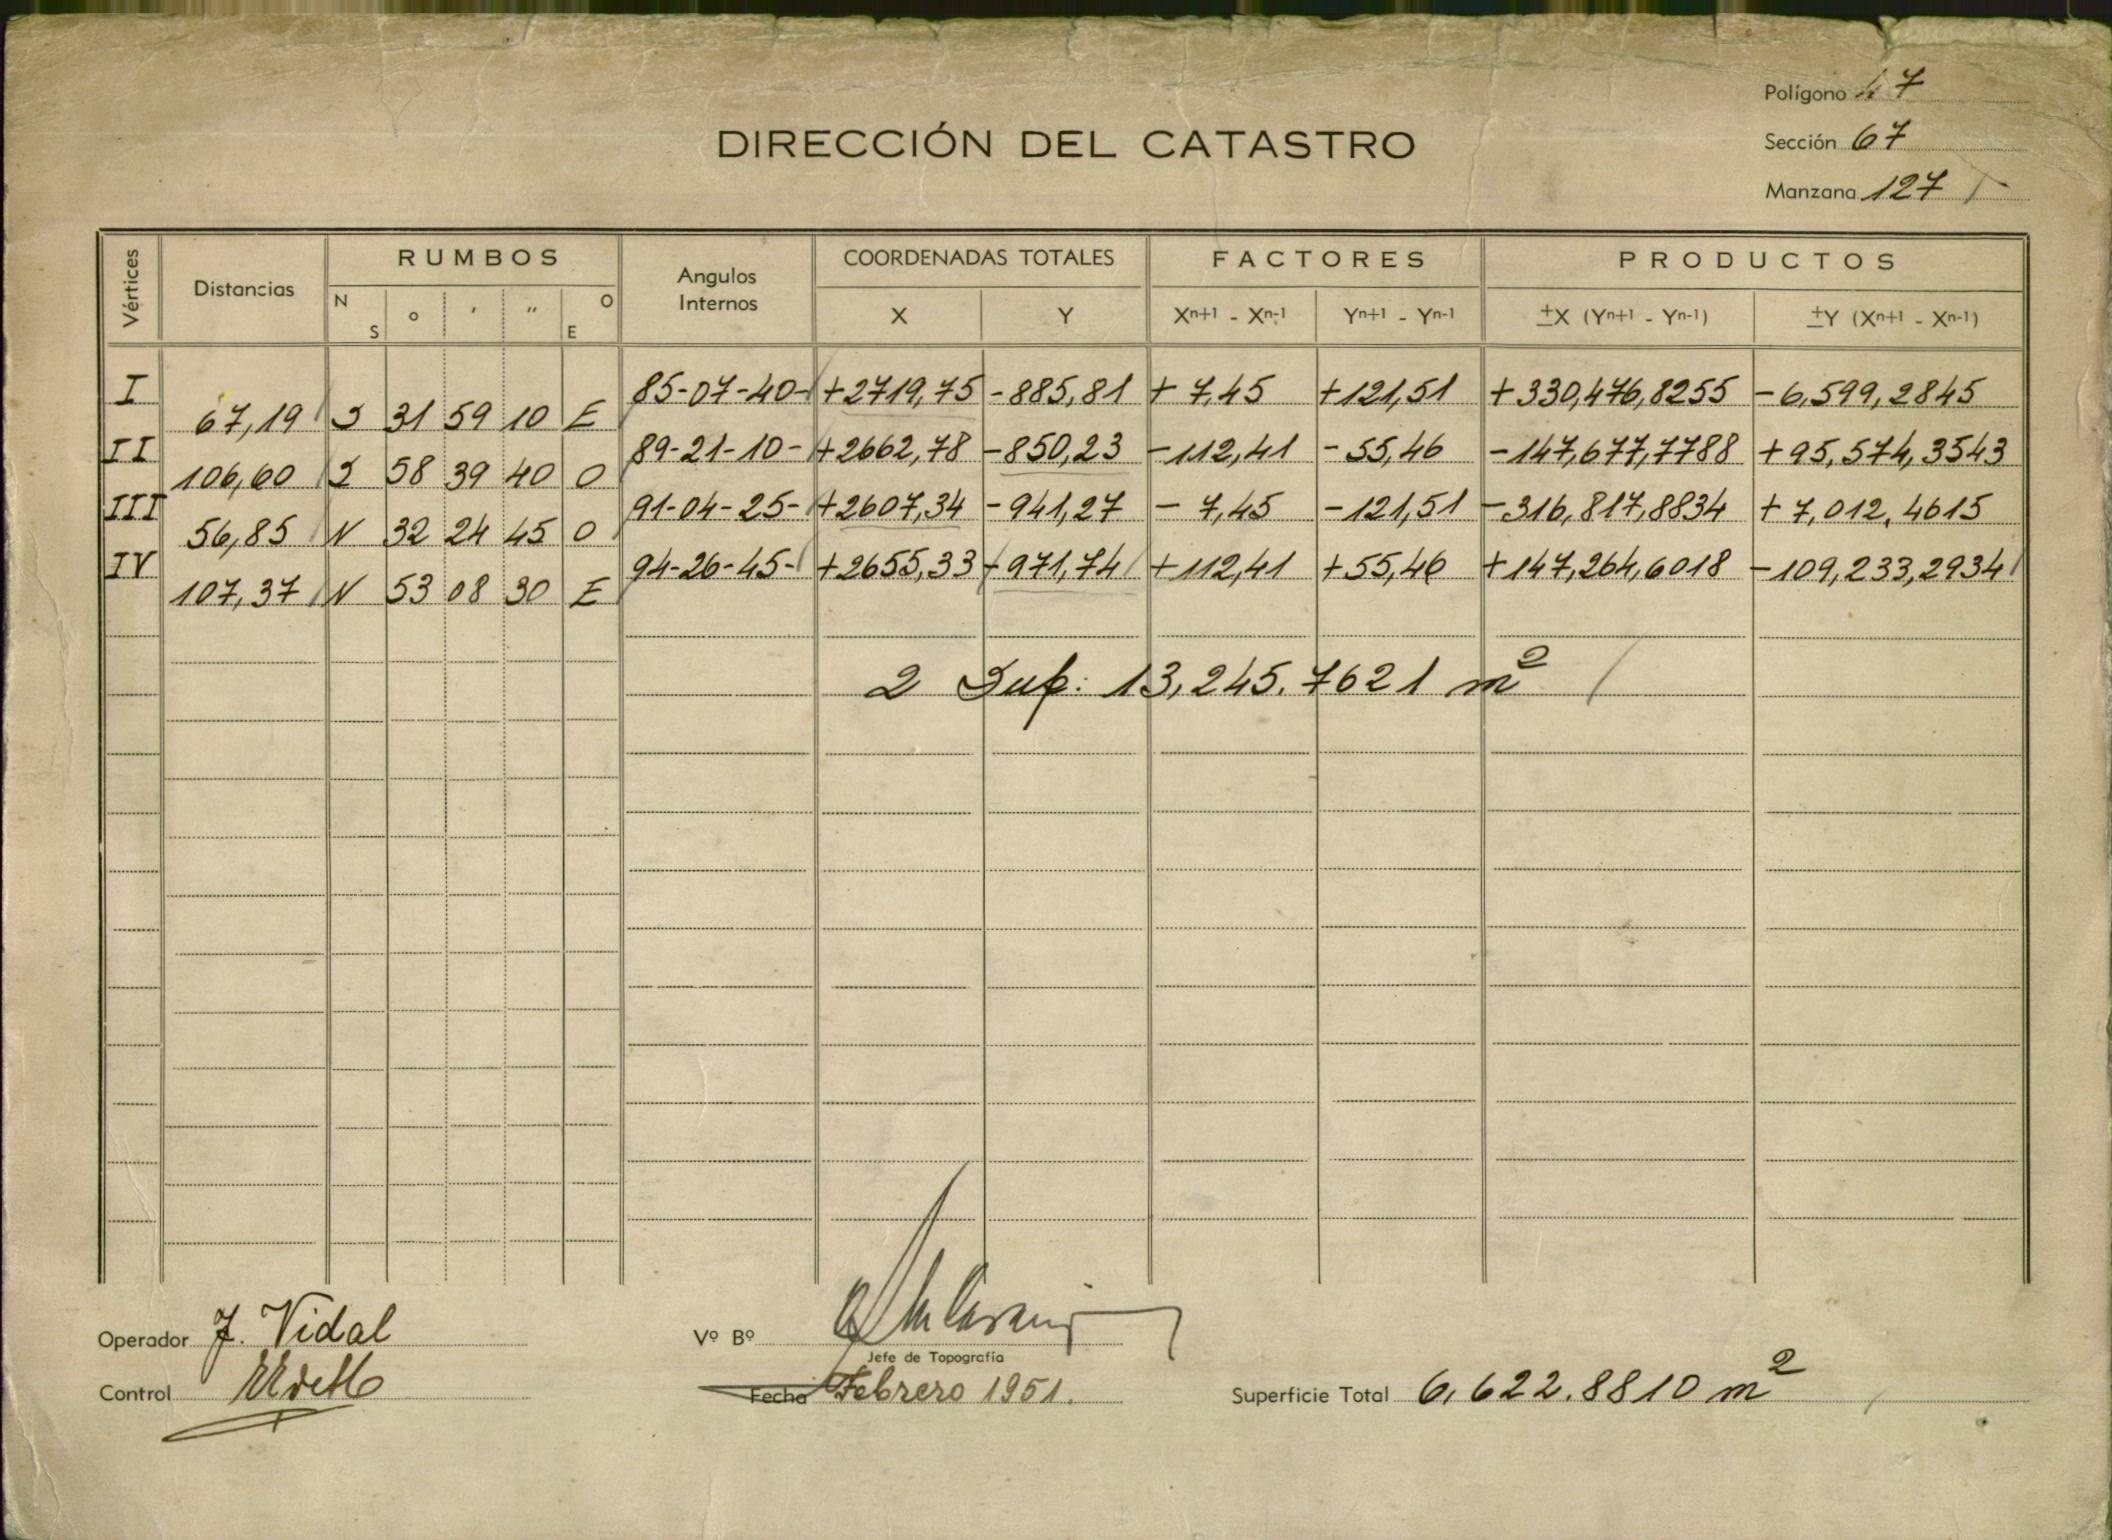 Polígono 47
DIRECCIÓN DEL CATASTRO
Sección 67
Manzana 127
Vértices Distancias RUMBOS Angulos Internos COORDENADAS TOTALES FACTORES PRODUCTOS
N S ° ' " E O X Y Xn+1 - Xn-1 Yn+1 - Yn-1 ±X (Yn+1 - Yn-1) ±Y (Xn+1 - Xn-1)
I 85-07-40- +2719,75 -885,81 + 7,45 +121,51 +330,476,8255 -6,599,2845
67,19 S 31 59 10 E
II 89-21-10- +2662,78 -850,23 -112,41 -55,46 -147,677,7788 +95,574,3543
106,60 S 58 39 40 O
III 91-04-25- +2607,34 -941,27 - 7,45 -121,51 -316,817,8834 +7,012,4615
56,85 N 32 24 45 O
IV 94-26-45- +2655,33 -971,74 +112,41 +55,46 +147,264,6018 -109,233,2934
107,37 N 53 08 30 E
2 Sup: 13,245.7621 m²
Operador J. Vidal
Vº Bº
Jefe de Topografía
Control
Fecha Febrero 1951.
Superficie Total 6,622.8810 m²